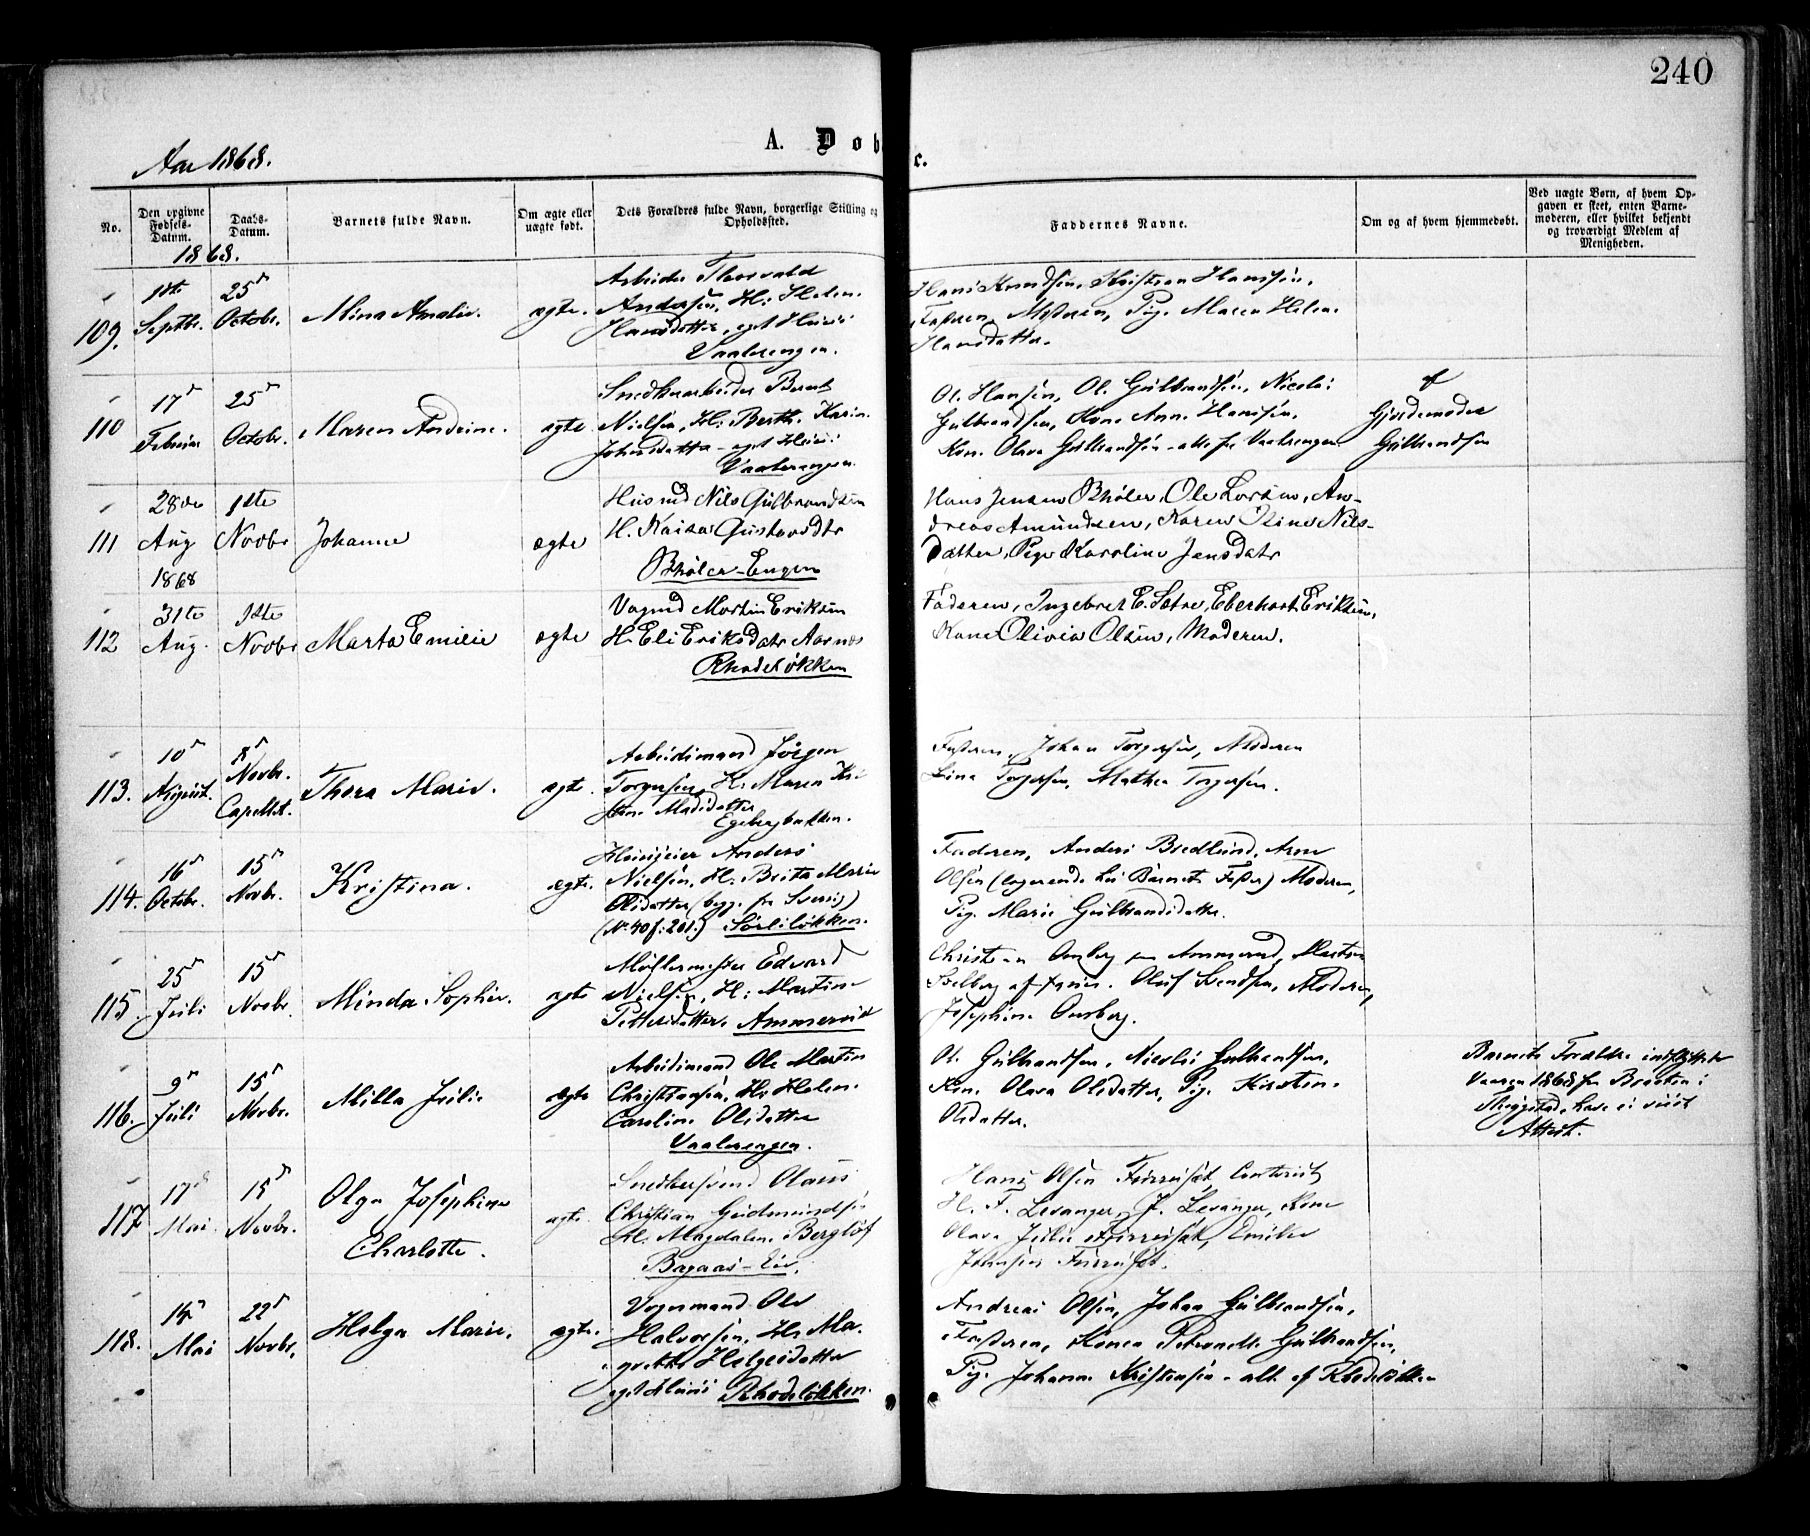 240
A. Døb c.
Aar 1868.
No.
Den opgivne Fødsels-Datum.
Daabs-Datum.
Barnets fulde Navn.
Om ægte eller uægte født.
Dets Forældres fulde Navn, borgerlige Stilling og Opholdssted.
Faddernes Navne.
Om og af hvem hjemmedøbt.
Ved uægte Børn, af hvem Opgaven er skeet, enten Barnemoderen, eller hvilket bekjendt og troværdigt Medlem af Menigheden.
1868.
109.
1ste Septbr.
25d Octobr.
Mina Amalie.
ægte.
Arbeider Thorvald
Andersen, H: Helene
Hansdatter, eget Huus
Vaalerengen.
Hans Knudsen, Kristian Hansen,
Faderen, Moderen, Pige Maren Helene
Hansdatter.
110
17d Februar
25d Octobr.
Maren Andrine.
ægte
Snedkerarbeider Bernt
Nielsen, H: Berthe Karine
Johnsdatter - eget Huus
Vaalerengen.
Ole Hansen, Ole Gulbrandsen, Nicolai
Gulbrandsen, Kone Anne Hansen,
Kone Olava Gulbrandsen - alle fra Vaalerengen
af
Gjordemoder
Gulbrandsen
111
28de Aug 1868
1ste Novbr
Johanne
ægte
Husmd Nils Gulbrandsen
H. Kaisa Gustavsdtr
Bhøler-Engen
Hans Jensen Bhøler, Ole Larsen, An-
dreas Amundsen, Karen Oline Nils-
datter, Pige Karoline Jensdatr
112
31te Aug.
1ste Novbr
Marta Emilie
ægte
Vognmd Martin Eriksen
H. Eli Eriksdatr Aarnæs
Rhodeløkken
Faderen, Ingebret E. Sætre, Eberhart Eriksen,
Kone Olivia Olsen, Moderen.
113.
10d August.
8d Novbr. Capellet.
Thora Marie.
ægte.
Arbeidsmand Jørgen
Torgersen, H: Maren Kri
stine Madsdatter
Egebergbakken.
Faderen, Johan Torgersen, Moderen
Lina Torgersen, Mathea Torgersen.
114.
16d Octobr.
15d Novbr.
Kristina.
ægte.
Huuseier Anders
Nielsen, H. Brita Marie
Olsdatter (begge fra Sverig)
(No 40 f: 201.) Sørliløkken.
Faderen, Anders Bredlund, Arne
Olsen (logerende hos Barnets Fader) Moderen,
Pige Marie Gulbrandsdatter.
115.
25d Juli
15d Novbr.
Minda Sophie.
ægte
Møllermester Edvard
Nielsen, H: Martine
Pettersdatter, Ammerud
Solberg af Oluf Svendsen, Moderen,
Josephine
116.
9d Juli
15d Novbr.
Milla Julie
ægte
Arbeidsmand Ole Martin
Christiansen, H: Helene
Caroline Olsdatter
Vaalerengen.
Ole Gulbrandsen, Nicolai Gulbrandsen,
Kone Olava Olsdatter, Pige Kirsten
Olsdatter.
Barnets Forældre indflyttede
Vaaren 1868 fra
have ei viist
Attest.
117
17d Mai.
15d Novbr.
Olga Josephine
Charlotte.
ægte.
Snedkersvend Olaus
Christian Gudmundsen
H. Magdalene Bergløf
Hans Olsen Furuset, Contorist
H. F. Levanger, J. Levanger, Kone
Olava Julie Furuset, Emilie
Johnsen Furuset.
118.
14d Mai
22d Novbr.
Helga Marie.
ægte.
Vognmand Ole
Halvorsen, H: Ma-
grethe Helgesdatter
eget Huus Rhodeløkken.
Andreas Olsen, Johan Gulbrandsen,
Faderen, Konen Petronelle Gulbrandsen,
Pige Johanne Kristensen - alle af Rhodeløkken